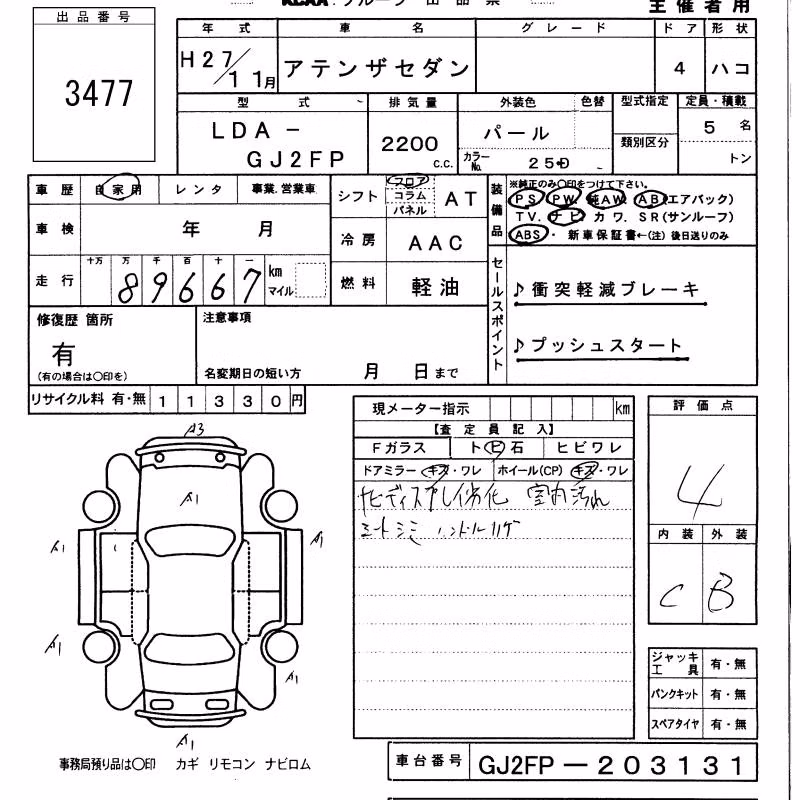 主催者用
出品番号
3477
年式 車名 グレード ドア 形状
H27/11月 アテンザセダン 4 ハコ
型式 排気量 外装色 色替 型式指定 定員・積載
LDA-
GJ2FP
2200 c.c.
パール
カラーNo. 25D
類別区分
5 名
トン
車歴 自家用 レンタ 事業.営業車
シフト フロア コラム パネル AT
装備品
※純正のみ〇印をつけて下さい。
PS PW 純AW AB(エアバック)
TV. ナビ カワ. SR(サンルーフ)
ABS・ 新車保証書←(注) 後日送りのみ
車検 年 月
冷房 AAC
走行 十万 万 千 百 十 一
89667 km マイル
燃料 軽油
セールスポイント
♪衝突軽減ブレーキ
♪プッシュスタート
修復歴 箇所
有
(有の場合は〇印を)
注意事項
名変期日の短い方 月 日まで
リサイクル料 有・無 11330円
現メーター指示 km
【査定員記入】
Fガラス トビ石 ヒビワレ
ドアミラー キズ・ワレ ホイール(CP) キズ・ワレ
ナビディスプレイ劣化 室内汚れ
シートシミ ハンドルハゲ
評価点
4
内装 外装
C B
A3
A1
A1
A1
A1
A1
A1
ジャッキ工具 有・無
パンクキット 有・無
スペアタイヤ 有・無
事務局預り品は〇印 カギ リモコン ナビロム
車台番号 GJ2FP-203131